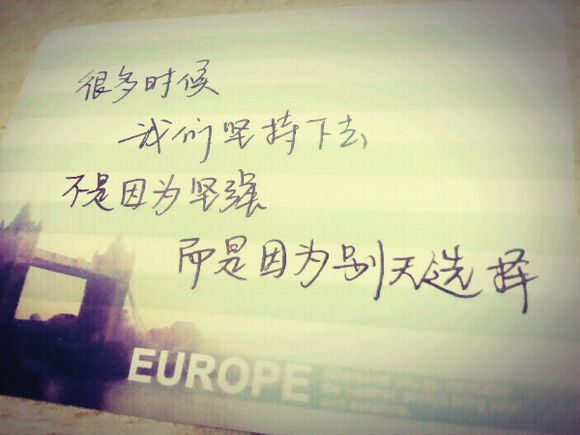 很多时候
我们坚持下去
不是因为坚强
而是因为别无选择
EUROPE